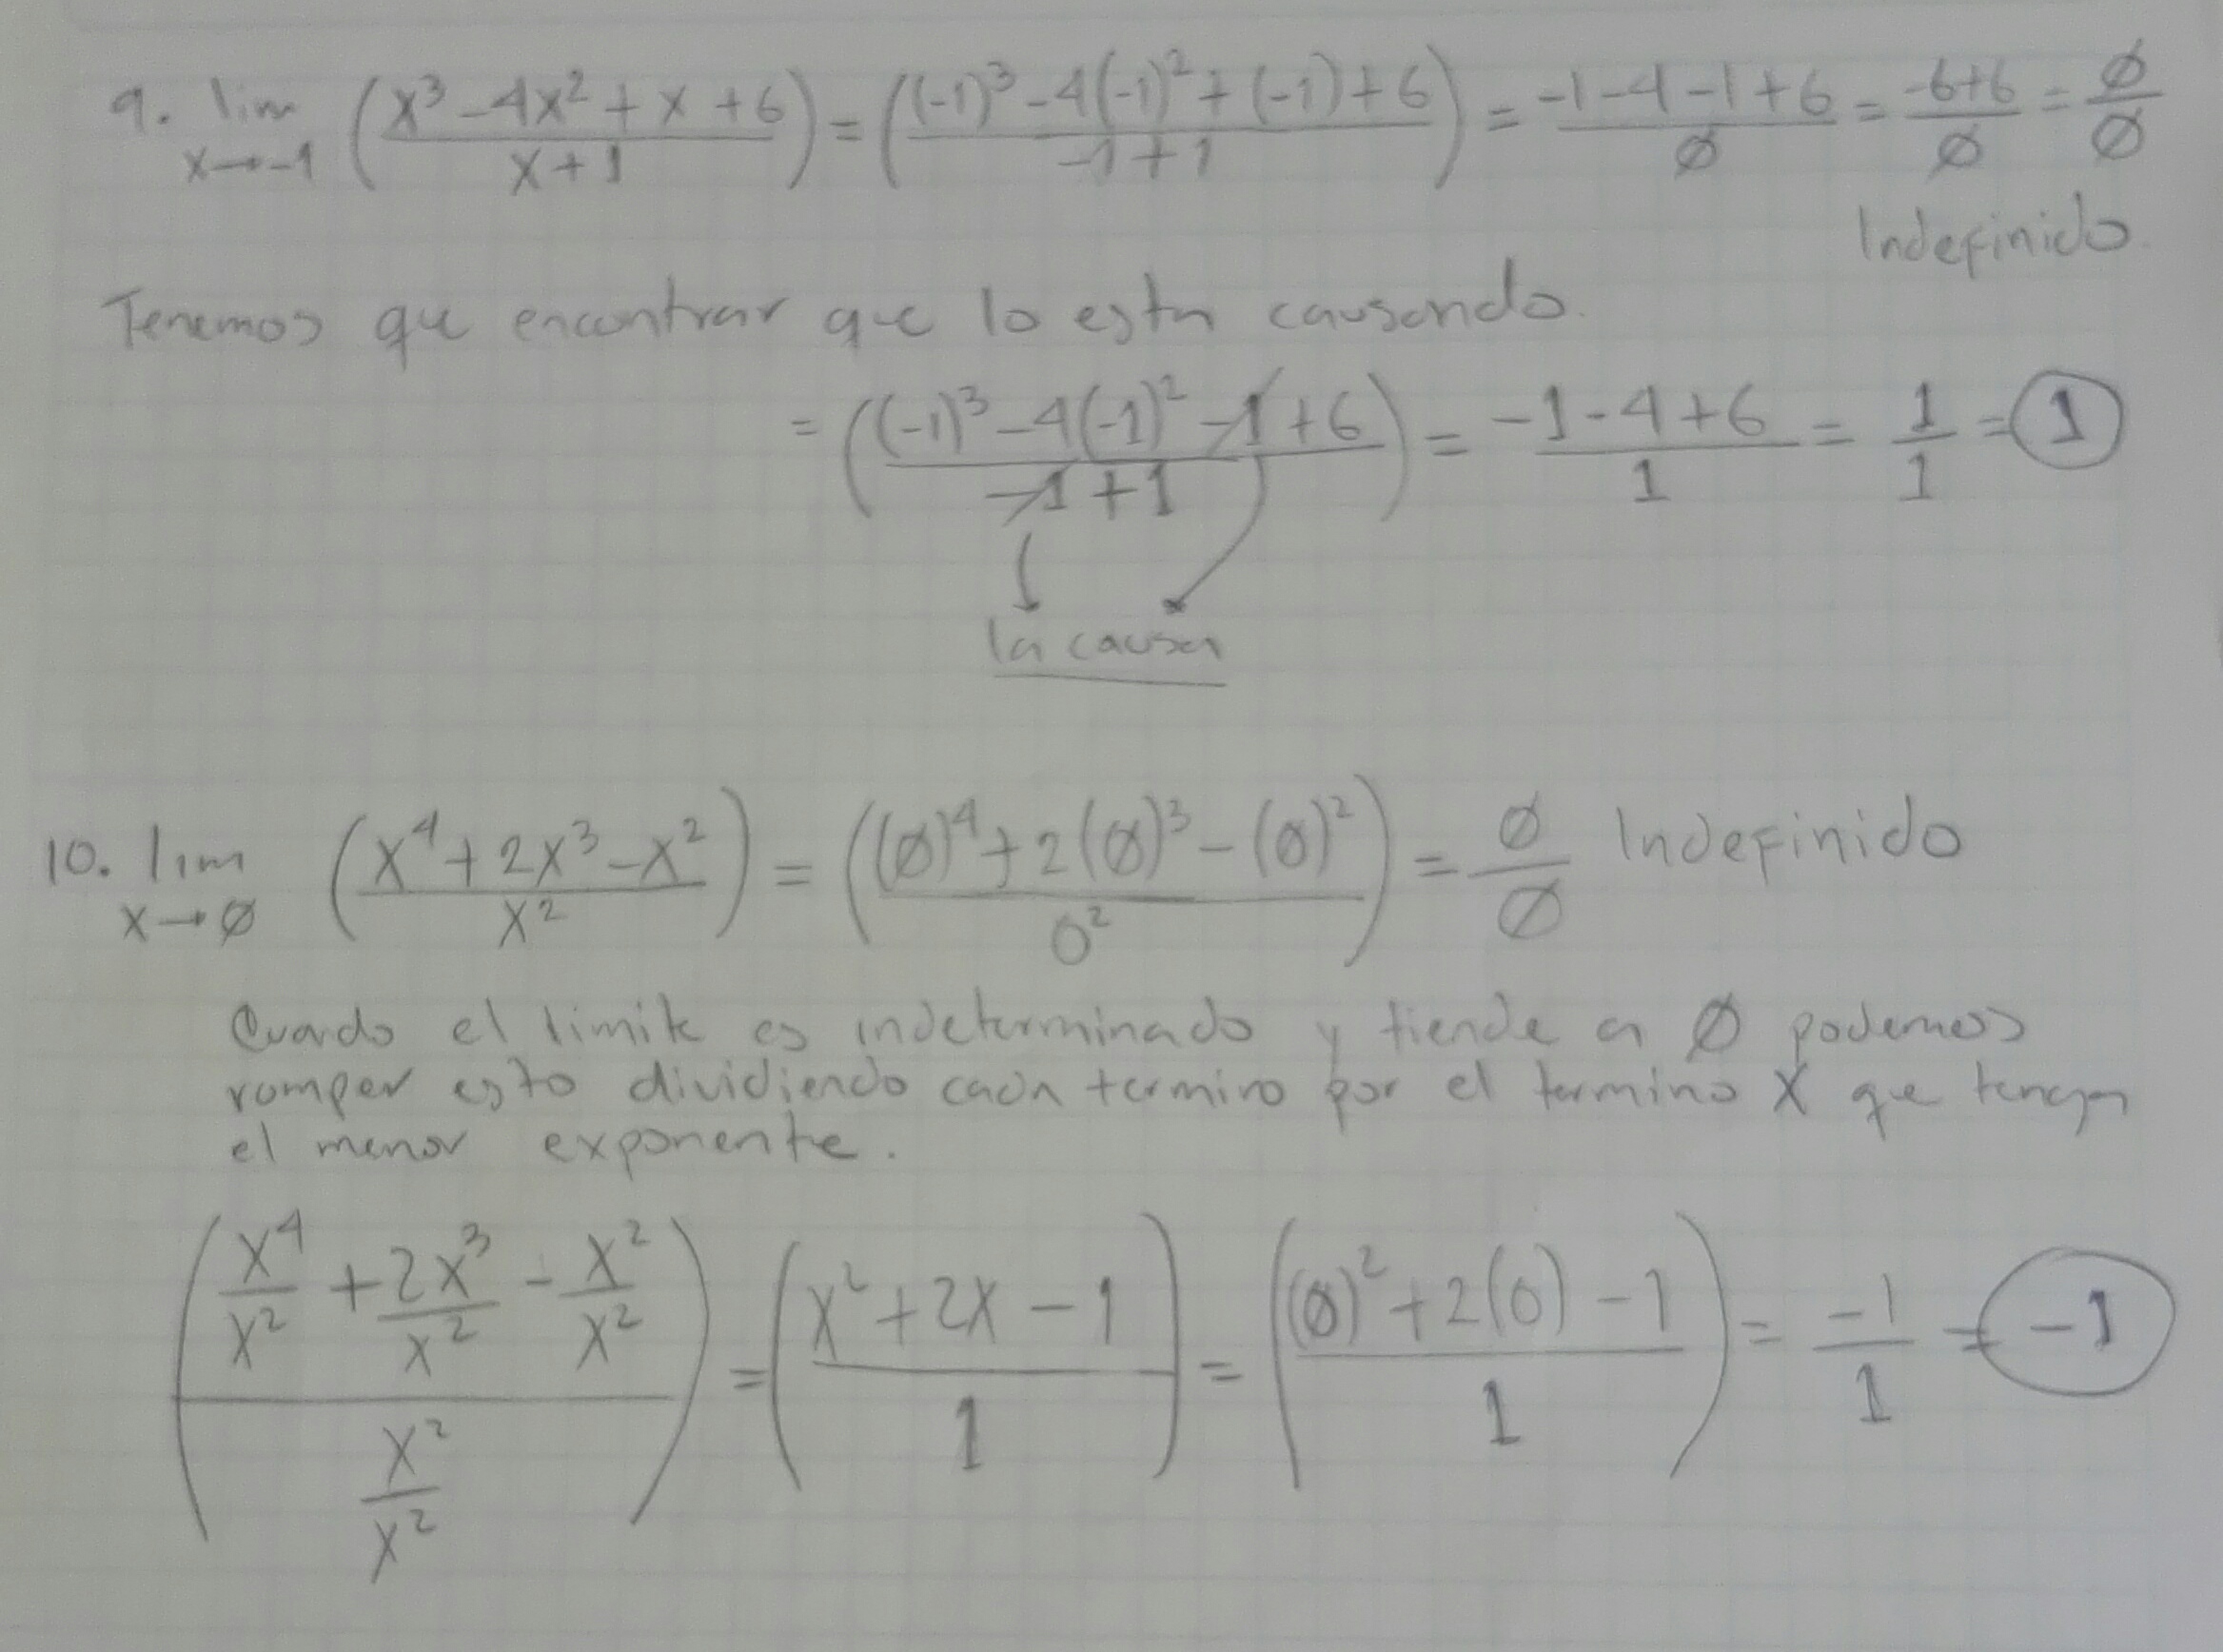 9. lim x→-1 ((x³ - 4x² + x + 6)/(x + 1)) = (((-1)³ - 4(-1)² + (-1) + 6)/(-1 + 1)) = (-1 - 4 - 1 + 6)/∅ = (-6+6)/∅ = ∅/∅
Indefinido.
Tenemos que encontrar que lo esta causando.
= (((-1)³ - 4(-1)² - 1 + 6)/(-1 + 1)) = (-1 - 4 + 6)/1 = 1/1 = 1
la causa
10. lim x→∅ ((x⁴ + 2x³ - x²)/x²) = (((∅)⁴ + 2(∅)³ - (∅)²)/0²) = ∅/∅ Indefinido
Cuando el limite es indeterminado y tiende a ∅ podemos
romper esto dividiendo cada termino por el termino X que tenga
el menor exponente.
((x⁴/x² + 2x³/x² - x²/x²)/(x²/x²)) = ((x² + 2x - 1)/1) = (((∅)² + 2(0) - 1)/1) = -1/1 = -1